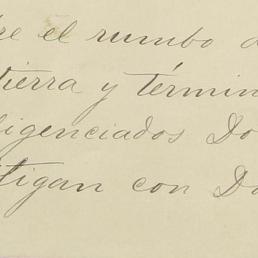 re el rumbo d
tierra y términ
ligenciados Do
tigan con Do